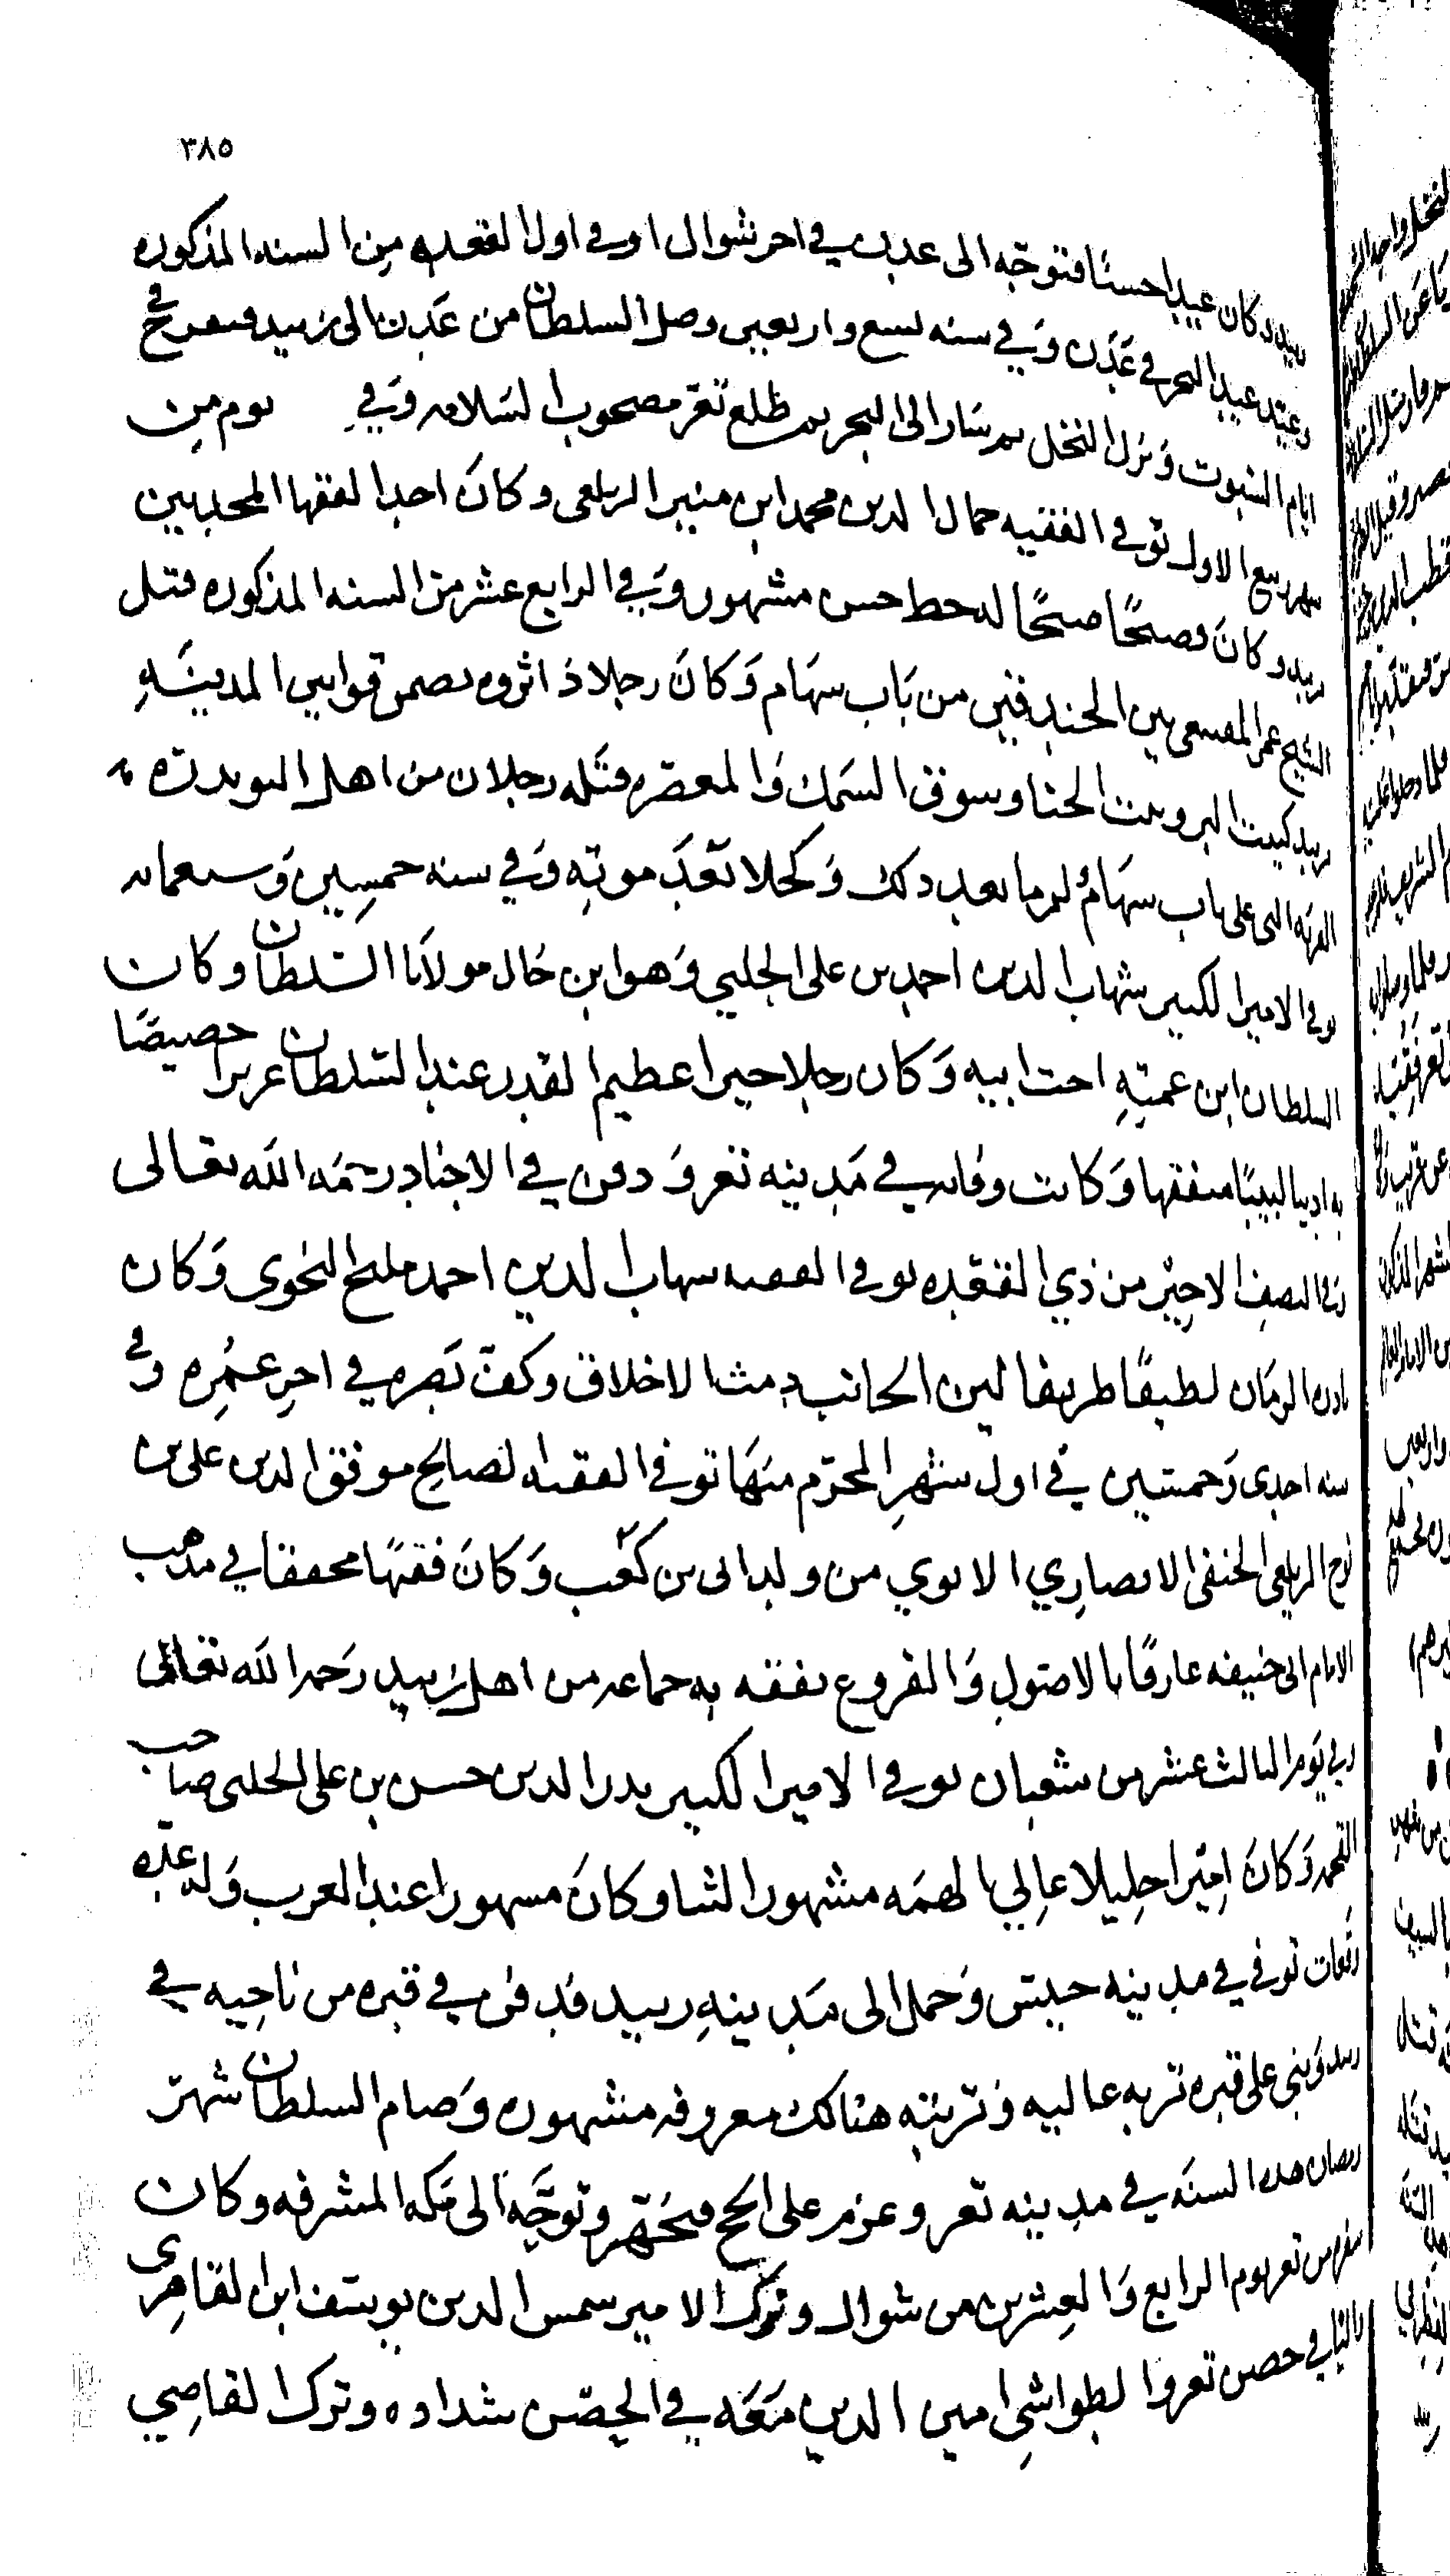 ٣٨٥
زبيد وكان عيدا حسنا فتوجه الى عدن في اخر شوال او في اول القعده من السنه المذكوره
وعيد عيد النحر في عدن وَفي سنه تسع واربعين وصل السلطان من عدن الى زبيد فتفرج في
ايام السبوت وَنزل النخل ثم سَار الى البحر ثم طلع تعز مصحوب السَلامه وَفي يوم من
شهر ربيع الاول توفي الفقيه جمال الدين محمد ابن منير الزيلعى وكانَ احد الفقها المحدثين
بزبيد وكانَ فصيحًا صبيحًا له خط حسن مشهور وَفي الرابع عشر من السنه المذكوره قتل
الشيخ عمر بين الخندقين من بَاب سهَام وَكانَ رجلا ذا ثروه يضمن قوانين المدينه
زبيد كبيت البز وبيت الحنا وسوق السَمك وَالمعصره قتله رجلان من اهل
القريه التي على باب سهَام لزما بعد ذلك وَكحلا بَعدَ موته وَفي سنه خمسين وَسبعمائه
توفي الامير الكبير شهاب الدين احمد بن على الحلبي وَهو ابن خال مولانا السلطان وكان
السلطان ابن عمته اخت ابيه وَكان رجلا خيرا عظيم القدر عند السلطان عزيزا خصيصًا
به اديبا لبيبًا متفقها وَكانت وفاته في مَدينه تعز وَدفن في الاجناد رحمَه الله تعالى
وَفي النصف الاخير من ذي القعده توفي الفقيه شهاب الدين احمد مليح النحوى وَكان
نادرة الزمَان لطيفًا ظريفا لين الجانب دمث الاخلاق وكفّ بَصره في اخرِ عمُره وفي
سنه احدى وَخمسين في اول شهر المحرّم منهَا توفي الفقيه الصالح موفق الدين على بن
نوح الزيلعى الحنفى الانصاري الابوي من ولد ابى بن كعَب وَكانَ فقيهًا محققا في مذهب
الامام ابى حنيفه عارفًا بالاصول وَالفروع تفقه به جماعه من اهل زبيد رحَمه الله تعَالى
وفي يَوم الثالث عشر من شعبان توفي الامير الكبير بدر الدين حسن بن على الحلبى صاحب
القحمه وَكانَ امِيرا جليلا عالي الهمَه مشهور الثنا وكانَ مشهورا عند العرب وَله عده
وقعات توفي في مدينه حيس وَحمل الى مَدينهِ زبيد فدفن في قبره من ناحِيه في
زبيد وَبني على قبره تربه عاليه وَتربته هنالك معروفه مشهوره وَصام السلطان شهر
رمضان هذه السنَه في مدينه تعز وعزم على الحج فتجهَّز وتوجَّه الى مَكه المشرفه وكان
سفره من تعز يوم الرابع وَالعِشرين من شوال وتركَ الامير شمس الدين يوسَف ابن القاهِرى
نائبًا في حصن تعز والطواشِي امين الدين مَعَه في الحِصْن شداده وترك القاضِي